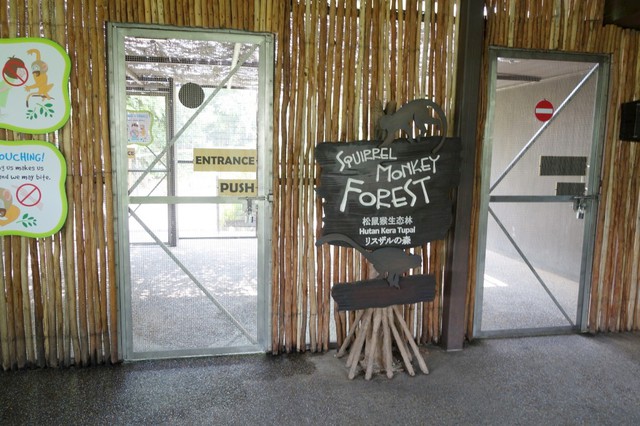 OUCHING!
us makes us
nd we may bite.
ENTRANCE
PUSH
SQUIRREL MONKEY
FOREST
松鼠猴生态林
Hutan Kera Tupai
リスザルの森